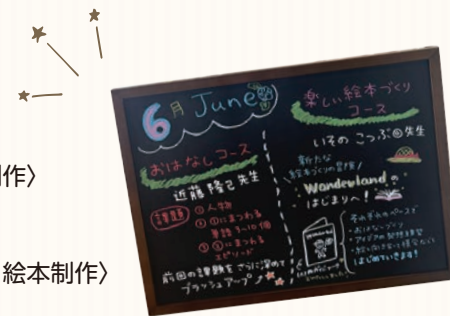 作〉
絵本制作〉
6月 June
おはなしコース
近藤隆己先生
課題
①人物
②①にまつわる
単語5~10個
③②にまつわる
エピソード
前回の課題をさらに深めて
ブラッシュアップ♪
楽しい絵本づくり
コース
いその こつぶ 先生
新たな
絵本づくりの冒険！
Wonderlandの
はじまりへ！
それぞれのペースで
・おはなしづくり
・アイデアの
はじめていきます！